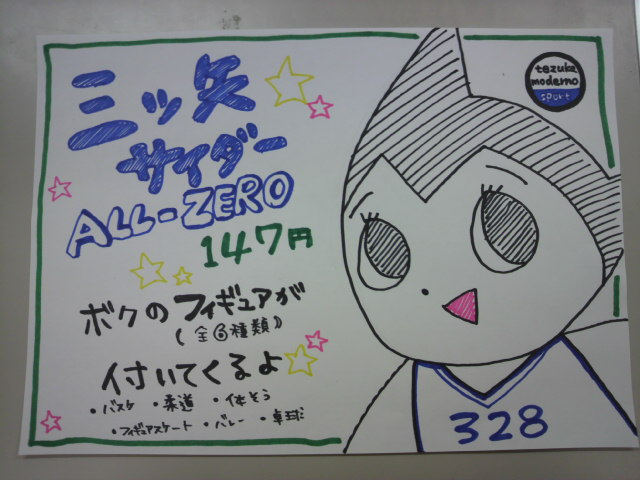 三ッ矢
サイダー
ALL-ZERO
147円
ボクのフィギュアが
(全6種類)
付いてくるよ
・バスケ ・柔道 ・体そう
・フィギュアスケート ・バレー ・卓球
tezuka
moderno
sport
328